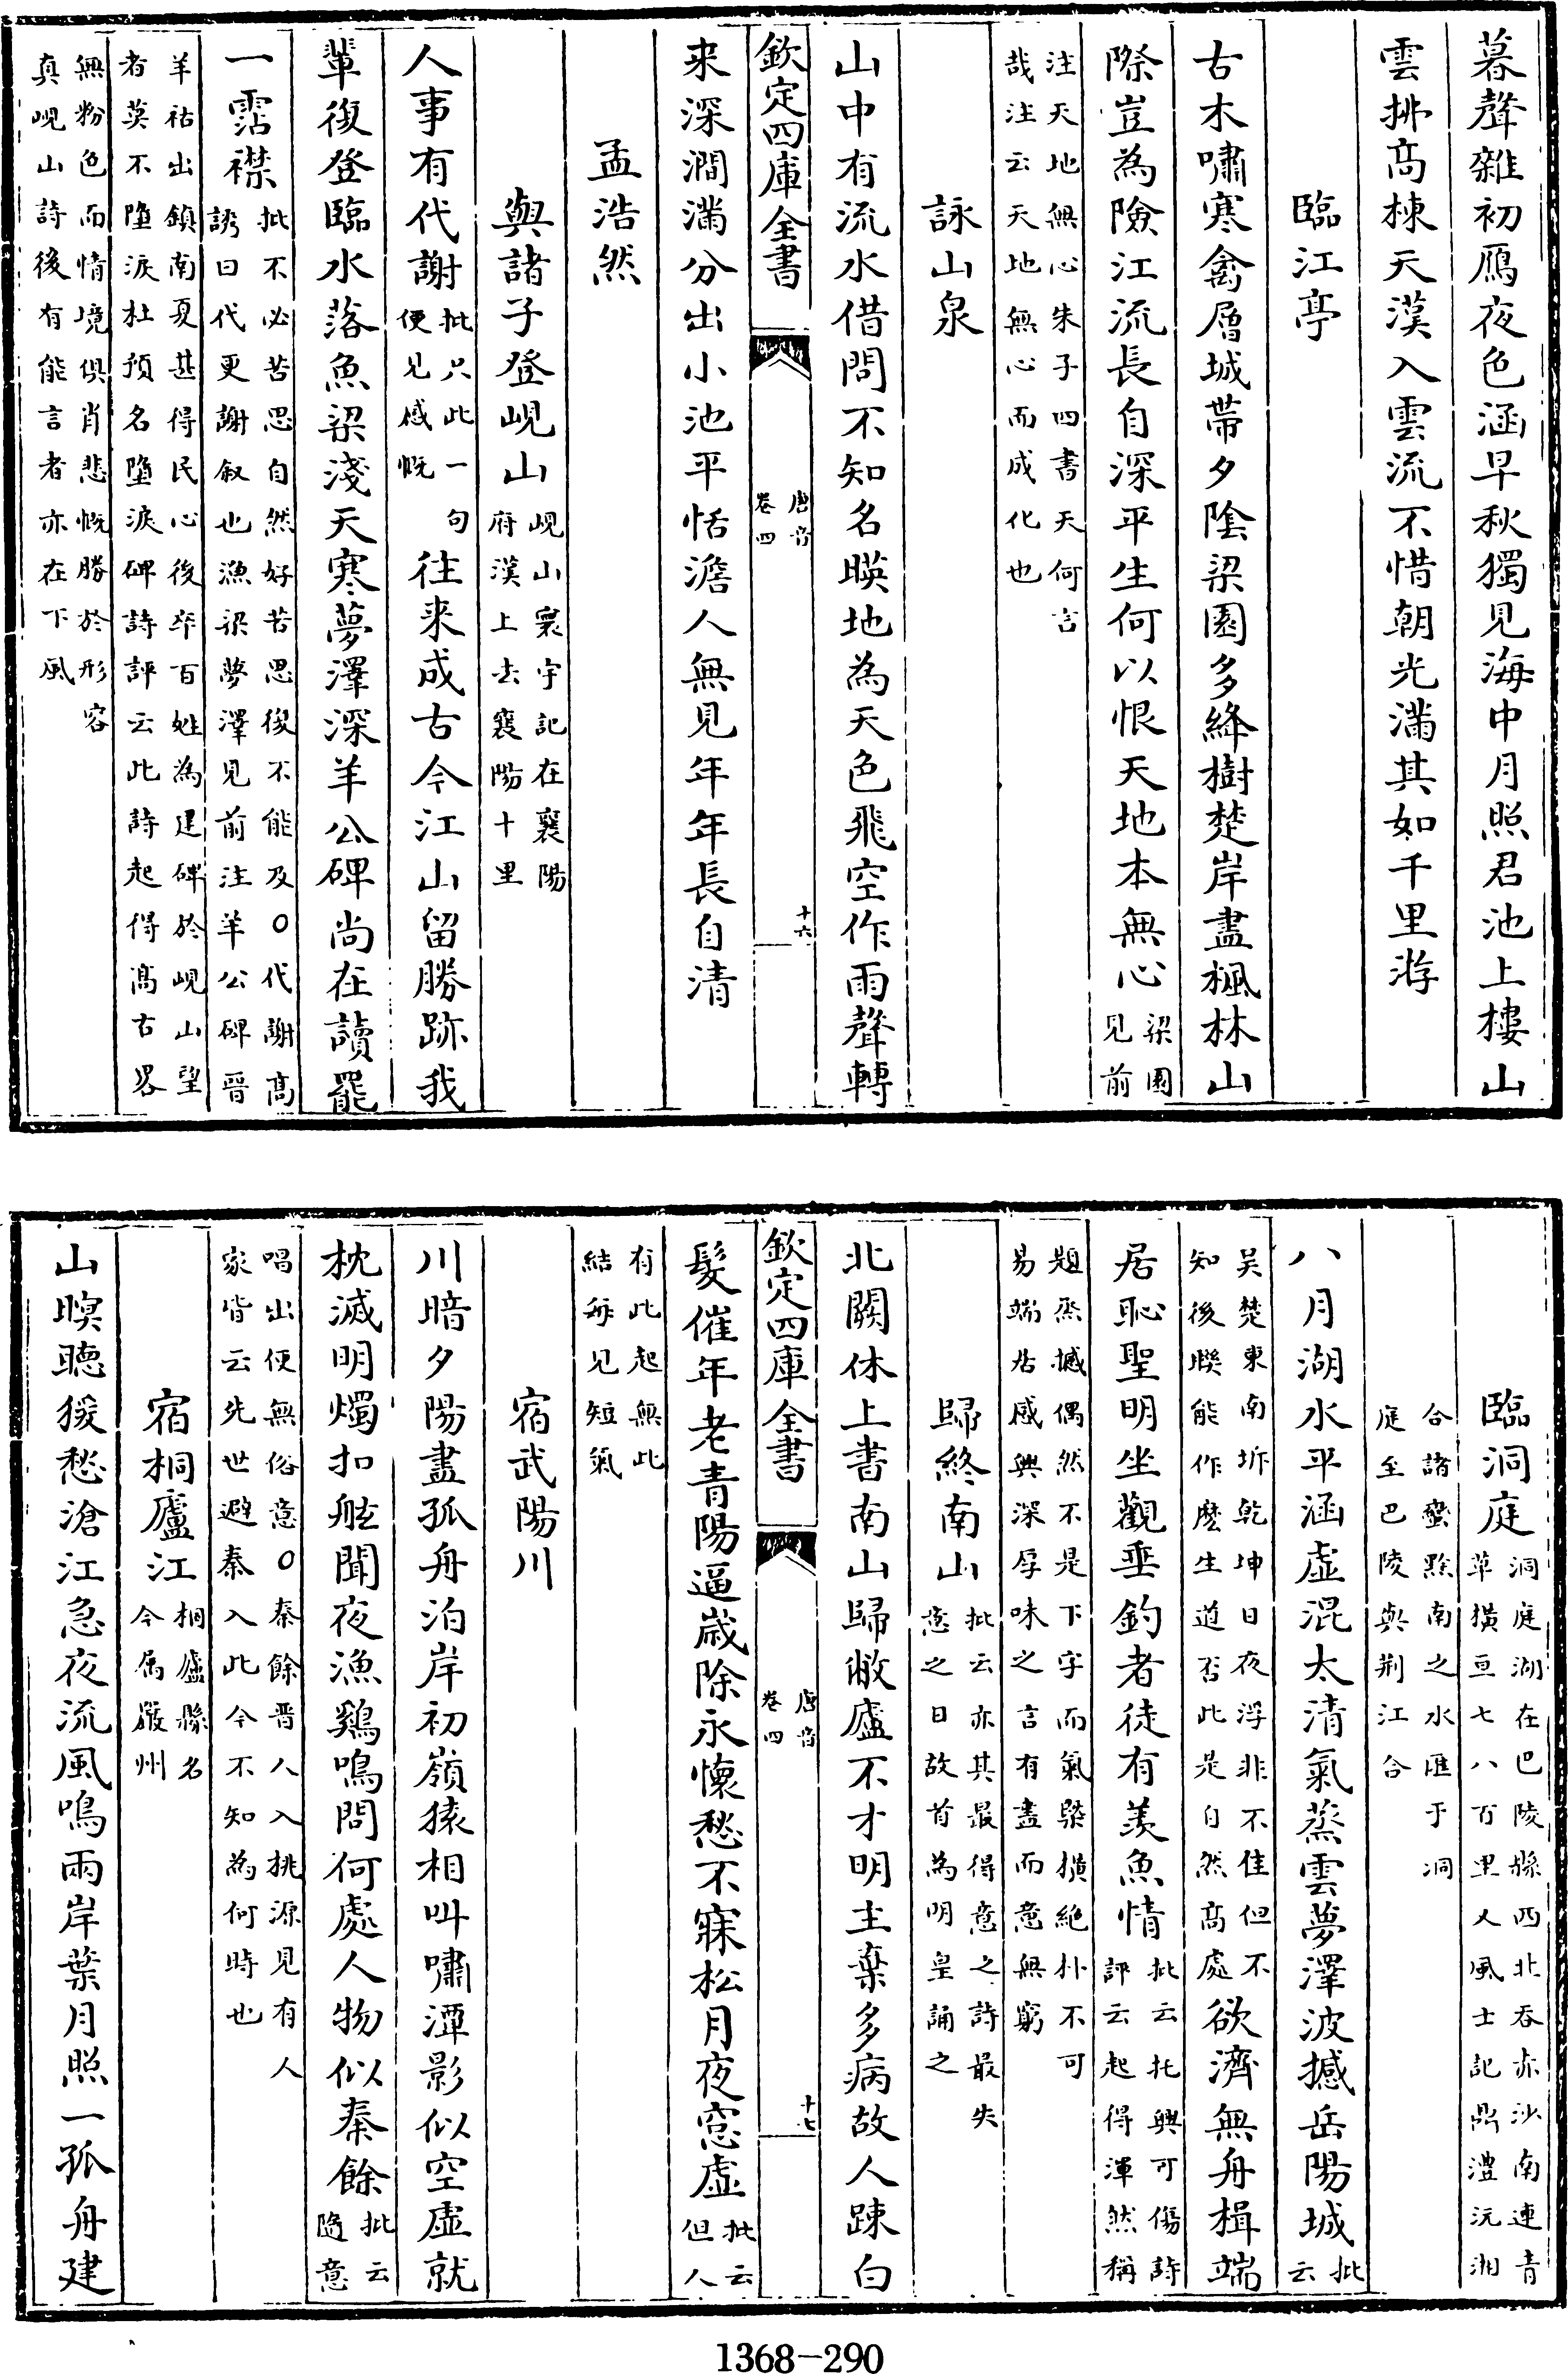 暮聲雜初鴈夜色涵早秋獨見海中月照君池上樓山
雲拂髙棟天漢入雲流不惜朝光滿其如千里游
臨江亭
古木嘯寒禽層城帶夕隂梁園多綘樹楚岸盡楓林山
際豈為險江流長自深平生何以恨天地本無心梁園見前
注天地無心朱子四書天何言
哉注云天地無心而成化也
詠山泉
山中有流水借問不知名暎地為天色飛空作雨聲轉
欽定四庫全書
唐音
卷四
十六
来深澗滿分出小池平恬澹人無見年年長自清
孟浩然
與諸子登峴山峴山寰宇記在襄陽府漢上去襄陽十里
人事有代謝批只此一句便見感慨往来成古今江山留勝跡我
輩復登臨水落魚梁淺天寒夢澤深羊公碑尚在讀罷
一霑襟批不必苦思自然好苦思復不能及○代謝髙誘曰代更謝叙也漁梁夢澤見前注羊公碑晉
羊祜出鎮南夏甚得民心後卒百姓為建碑於峴山望
者莫不墮淚杜預名墮淚碑詩評云此詩起得髙古畧
無粉色而情境俱肖悲慨勝於形容
真峴山詩後有能言者亦在下風
臨洞庭洞庭湖在巴陵縣西北吞赤沙南連青草橫亘七八百里又風士記鼎澧沅湘
合諸蠻黔南之水匯于洞
庭至巴陵與荆江合
八月湖水平涵虚混太清氣蒸雲夢澤波撼岳陽城批云
吳楚東南坼乾坤日夜浮非不佳但不知後聮能作麽生道否此是自然髙處欲濟無舟楫端
居恥聖明坐觀垂釣者徒有羨魚情批云托興可傷詩評云起得渾然稱
題蒸撼偶然不是下字而氣槩横絶朴不可
易端居感興深厚味之言有盡而意無窮
歸終南山批云亦其最得意之詩最失意之日故首為明皇誦之
北闕休上書南山歸敝廬不才明主棄多病故人踈白
欽定四庫全書
唐音
卷四
十七
髮催年老青陽逼歲除永懷愁不寐松月夜窓虚批云但人
有此起無此
結每見短氣
宿武陽川
川暗夕陽盡孤舟泊岸初嶺猿相叫嘯潭影似空虚就
枕滅明燭扣舷聞夜漁鷄鳴問何處人物似秦餘批云隨意
唱出便無俗意○秦餘晋人入桃源見有人
家皆云先世避秦入此今不知為何時也
宿桐廬江桐廬縣名今屬嚴州
山暝聴猨愁滄江急夜流風鳴兩岸葉月照一孤舟建
1368-290